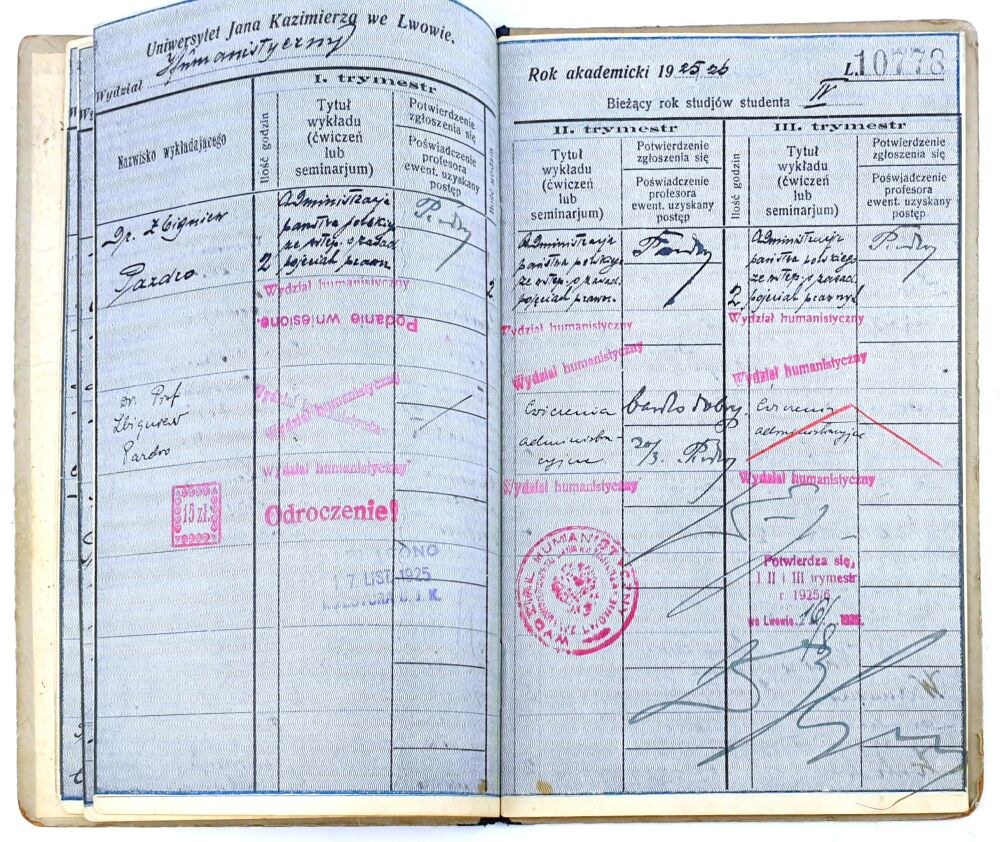 Uniwersytet Jana Kazimierza we Lwowie.
Wydział Humanistyczny
Nazwisko wykładającego
Ilość godzin
I. trymestr
Tytuł
wykładu
(ćwiczeń
lub
seminarjum)
Potwierdzenie
zgłoszenia się
Poświadczenie
profesora
ewent. uzyskany
postęp
Dr. Zbigniew
Pazdro
2
Administracja
państwa polskiego
ze wstęp. o zasad.
pojęciach prawn.
Wydział humanistyczny
Podanie wniesione.
Dr. Prof
Zbigniew
Pazdro
Wydział humanistyczny
Wydział humanistyczny
Wydział humanistyczny
15 zł.
Odroczenie!
7 LIST. 1925
KWESTURA U. J. K.
Rok akademicki 1925/26
L. 10778
Bieżący rok studjów studenta IV
II. trymestr
Tytuł
wykładu
(ćwiczeń
lub
seminarjum)
Potwierdzenie
zgłoszenia się
Poświadczenie
profesora
ewent. uzyskany
postęp
2
Administracja
państwa polskiego
ze wstęp. o zasad.
pojęciach prawn.
Pazdro
Wydział humanistyczny
Wydział humanistyczny
Ćwiczenia
administra-
cyjne
bardzo dobry.
20/3. Pazdro
Wydział humanistyczny
WYDZIAŁ HUMANISTYCZNY
III. trymestr
Ilość godzin
Tytuł
wykładu
(ćwiczeń
lub
seminarjum)
Potwierdzenie
zgłoszenia się
Poświadczenie
profesora
ewent. uzyskany
postęp
2
Administracja
państwa polskiego
ze wstęp. o zasad.
pojęciach prawnych
Pazdro
Wydział humanistyczny
Wydział humanistyczny
Ćwiczenia
administracyjne
Wydział humanistyczny
Potwierdza się,
I II i III trymestr
r. 1925/6
we Lwowie, 16/ 1926.